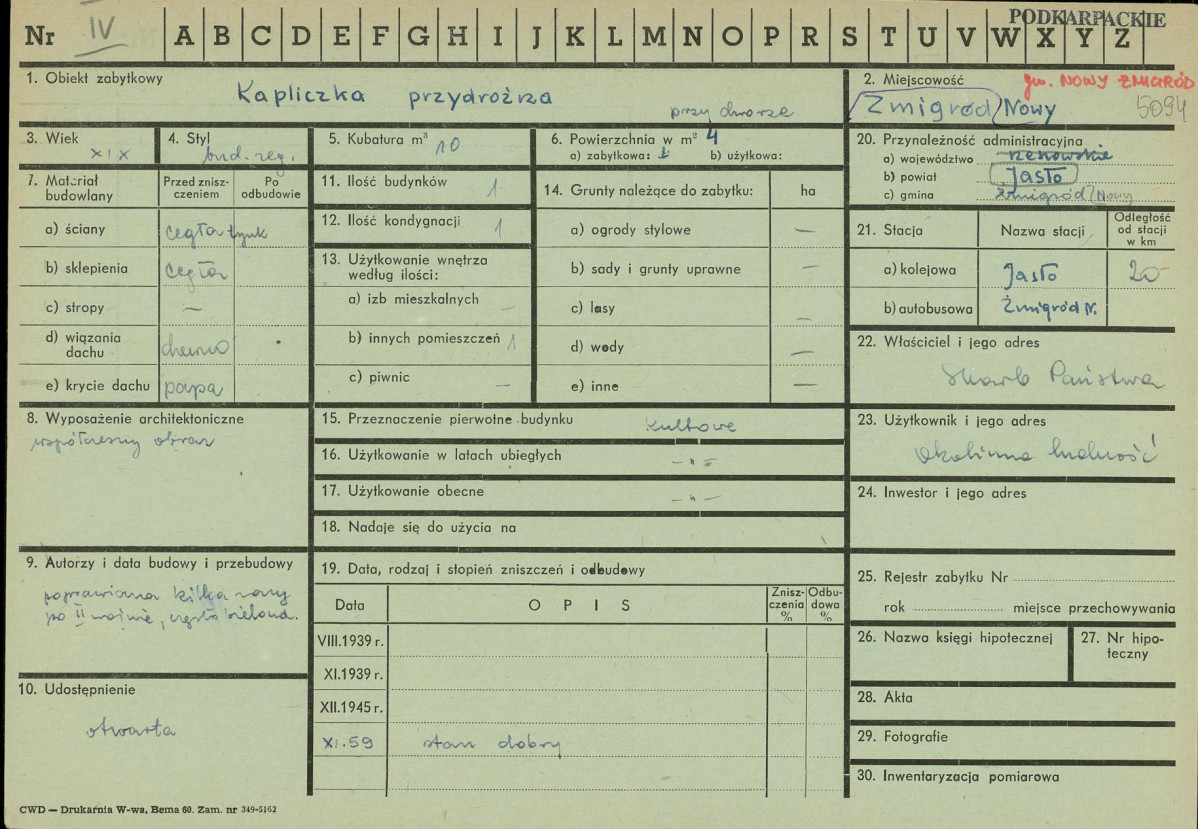 PODKARPACKIE
Nr IV A B C D E F G H I J K L M N O P R S T U V W X Y Z
1. Obiekt zabytkowy
Kapliczka przydrożna
przy dworze
2. Miejscowość
gm. NOWY ŻMIGRÓD
Żmigród Nowy
5094
3. Wiek
XIX
4. Styl
bud. reg.
5. Kubatura m³ 10
6. Powierzchnia w m² 4
a) zabytkowa: b) użytkowa:
20. Przynależność administracyjna
a) województwo rzeszowskie
b) powiat Jasło
c) gmina Żmigród Nowy
7. Materiał budowlany
Przed zniszczeniem
Po odbudowie
a) ściany cegła tynk
b) sklepienia cegła
c) stropy —
d) wiązania dachu drewno
e) krycie dachu papa
11. Ilość budynków 1
12. Ilość kondygnacji 1
13. Użytkowanie wnętrza według ilości:
a) izb mieszkalnych -
b) innych pomieszczeń 1
c) piwnic —
14. Grunty należące do zabytku: ha
a) ogrody stylowe —
b) sady i grunty uprawne —
c) lasy —
d) wody —
e) inne —
21. Stacja
Nazwa stacji
Odległość od stacji w km
a) kolejowa Jasło 20
b) autobusowa Żmigród N.
22. Właściciel i jego adres
Skarb Państwa
8. Wyposażenie architektoniczne
współczesny obraz
15. Przeznaczenie pierwotne budynku kultowe
16. Użytkowanie w latach ubiegłych -"-
17. Użytkowanie obecne -"-
18. Nadaje się do użycia na
23. Użytkownik i jego adres
okoliczna ludność
24. Inwestor i jego adres
9. Autorzy i data budowy i przebudowy
poprawiana kilka razy
po II wojnie, często bielona.
10. Udostępnienie
otwarta
19. Data, rodzaj i stopień zniszczeń i odbudowy
Data
OPIS
Zniszczenia %
Odbudowa %
VIII.1939 r.
XI.1939 r.
XII.1945 r.
XI.59 stan dobry
25. Rejestr zabytku Nr
rok miejsce przechowywania
26. Nazwa księgi hipotecznej
27. Nr hipoteczny
28. Akta
29. Fotografie
30. Inwentaryzacja pomiarowa
CWD — Drukarnia W-wa, Bema 60. Zam. nr 349-5162